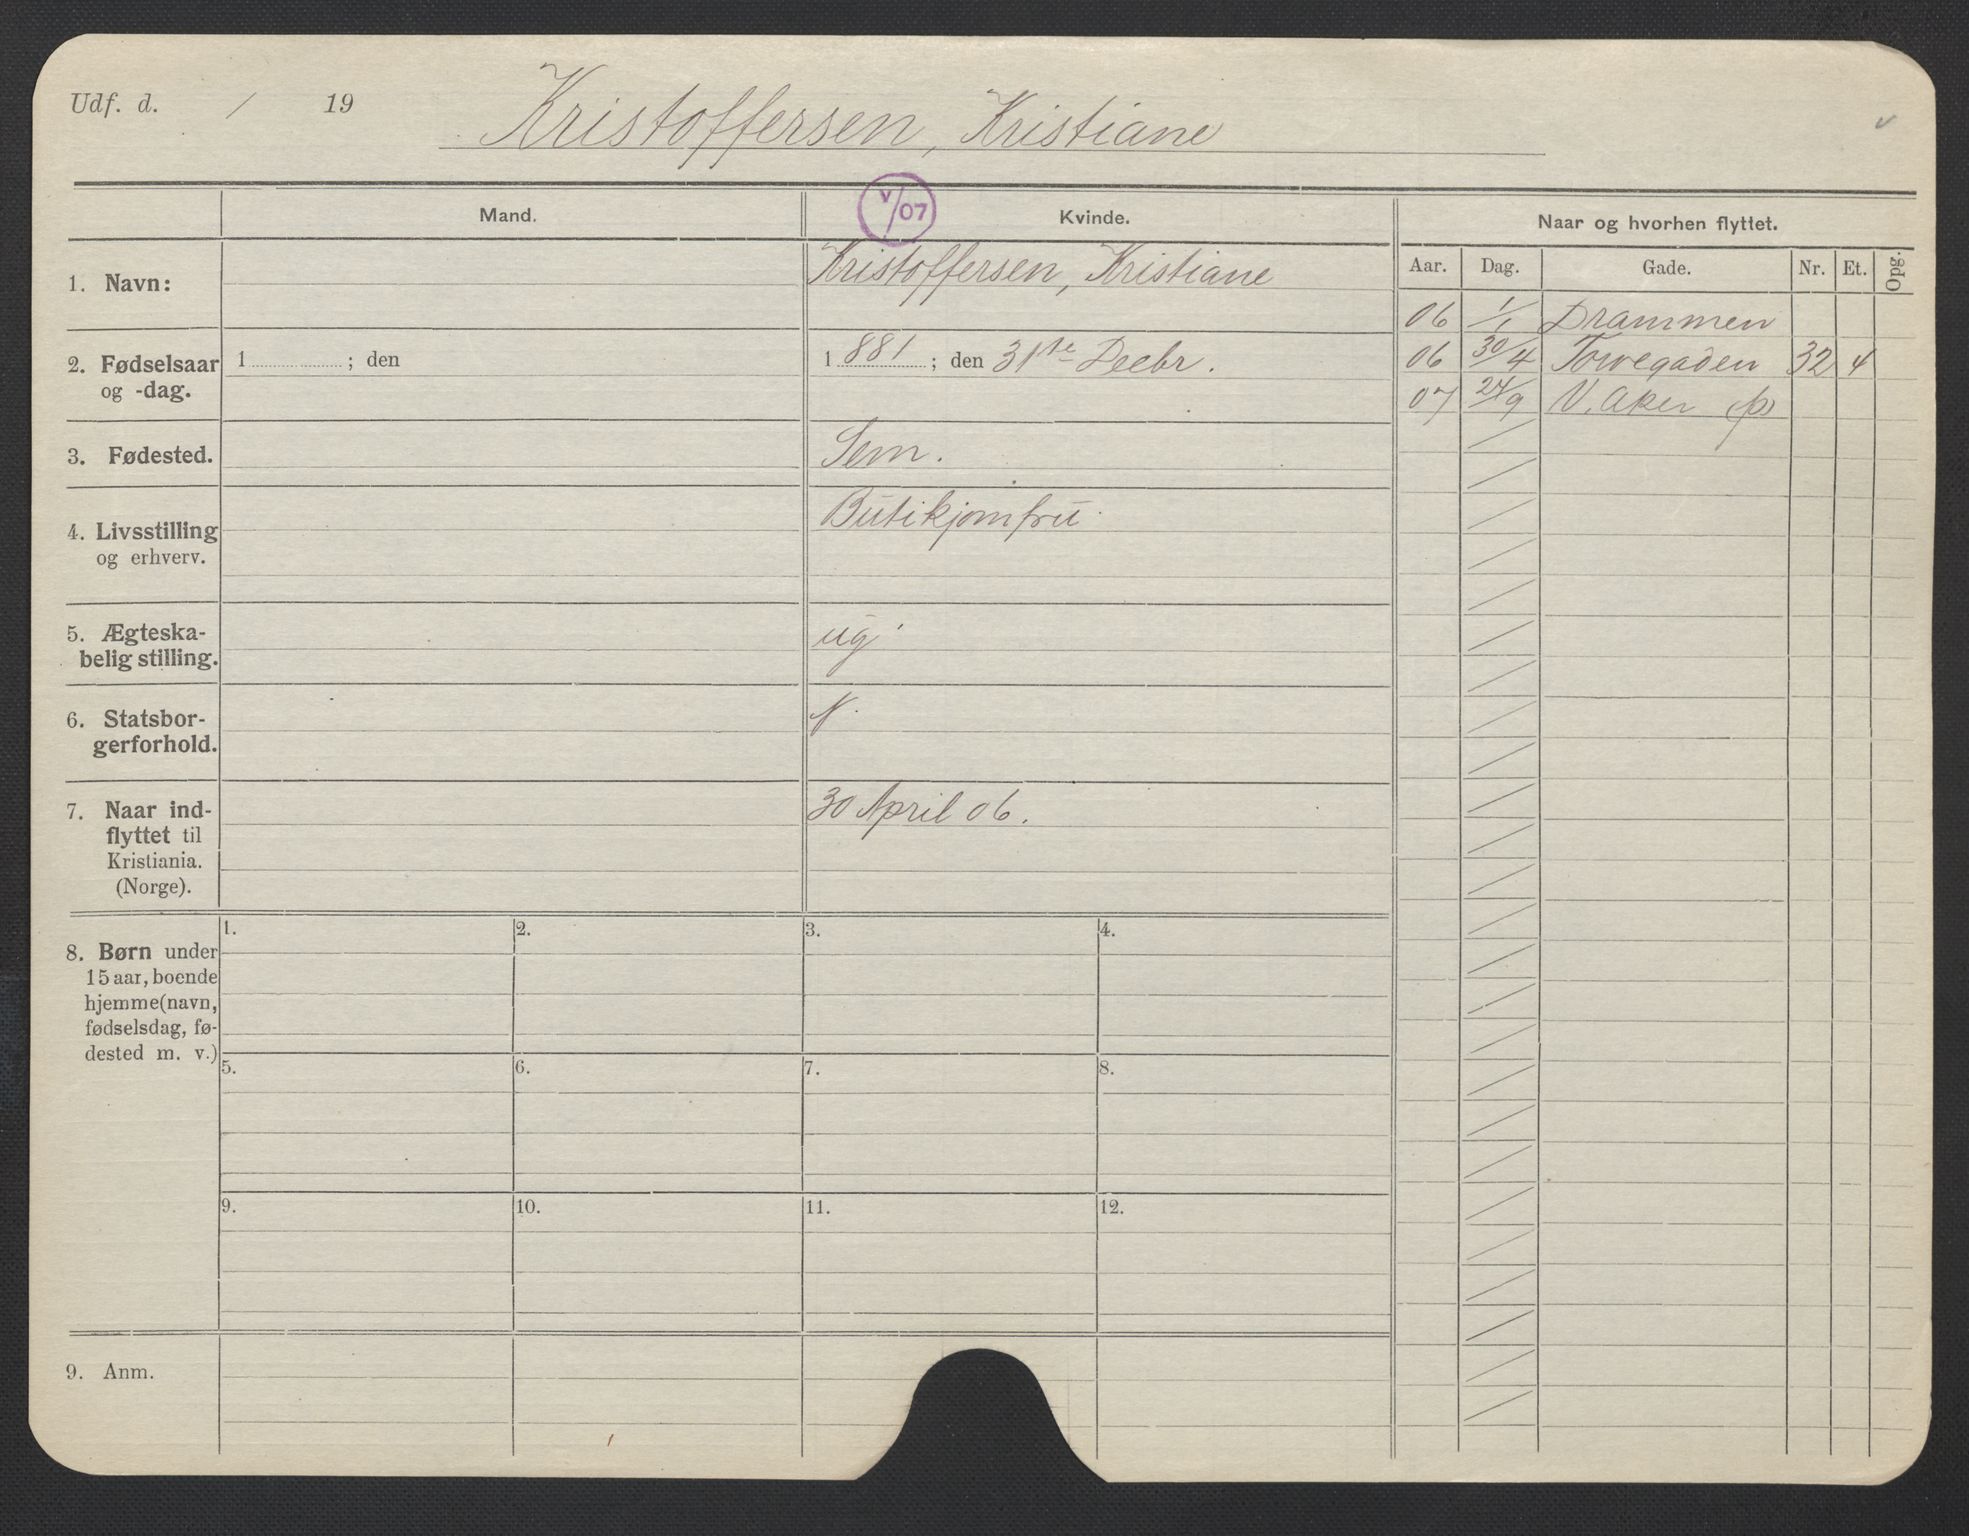 Udf. d. / 19
Kristoffersen, Kristiane
v
Mand.
V/07
Kvinde.
Naar og hvorhen flyttet.
Aar. Dag. Gade. Nr. Et. Opg.
1. Navn:
Kristoffersen, Kristiane
06 1/1 Drammen
06 30/4 Torvegaden 32 4
07 24/9 V. Aker (p)
2. Fødselsaar
og -dag.
1 ; den
1881 ; den 31te Decbr.
3. Fødested.
Sem.
4. Livsstilling
og erhverv.
Butikjomfru.
5. Ægteska-
belig stilling.
ug.
6. Statsbor-
gerforhold.
n.
7. Naar ind-
flyttet til
Kristiania.
(Norge).
30 April 06.
8. Børn under
15 aar, boende
hjemme(navn,
fødselsdag, fø-
dested m. v.)
1. 2. 3. 4.
5. 6. 7. 8.
9. 10. 11. 12.
9. Anm.